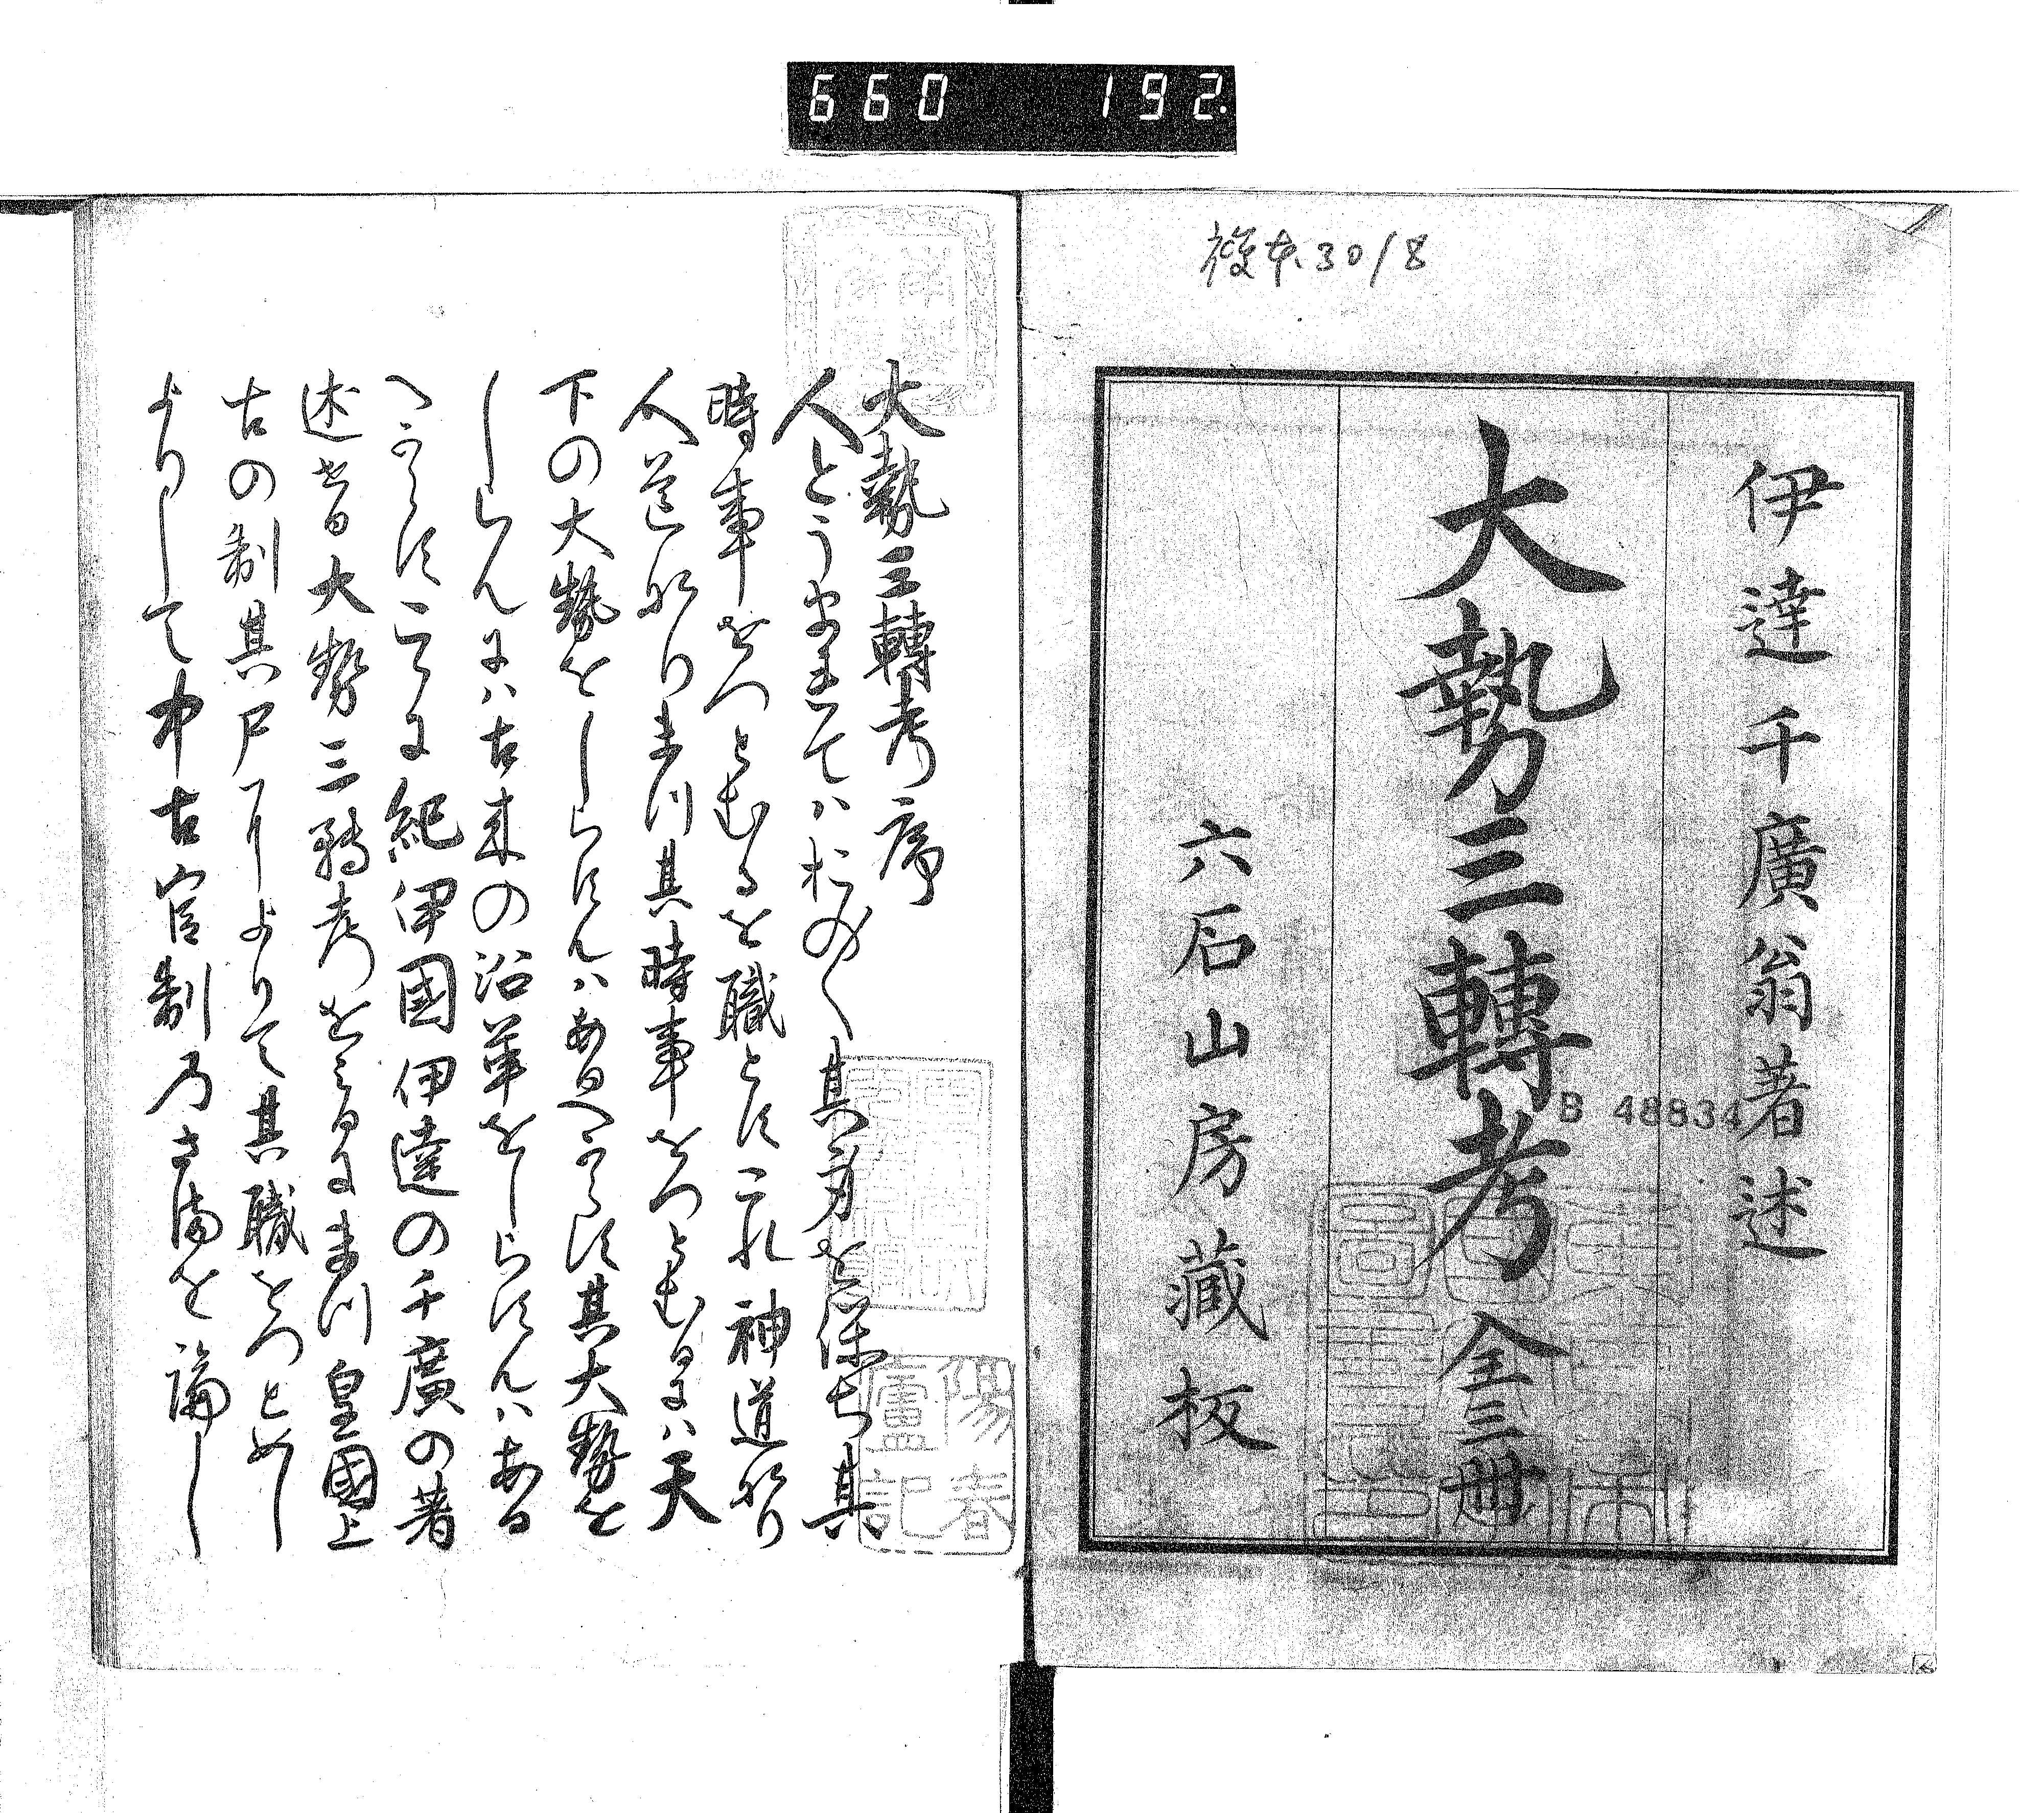 660 192.
複本30/8
伊達千廣翁著述
大勢三轉考 全三冊
六石山房藏板
B 48834
大勢三轉考序
人とうまれてハおのおの〱其身を保ち其
時事をつとむるを職とす是神道なり
人道なりまつ其時事をつとむるにハ天
下の大勢をしらすんハあるへからす其大勢を
しらんにハ古来の沿革をしらすんハある
へからすこゝに紀伊國伊達の千廣の著
述せる大勢三轉考をミるにまつ皇國上
古の制其尸によりて其職をつとめし
よりして中古官制乃さまを論し
陽春
廬記